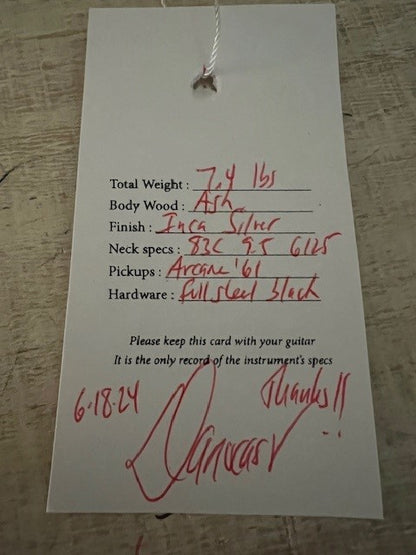 Total Weight : 7.4 lbs
Body Wood : Ash
Finish : Inca Silver
Neck specs : 83C 9.5 6125
Pickups : Arcane '61
Hardware : full steel black
Please keep this card with your guitar
It is the only record of the instrument's specs
6·18·24
Thanks!!
Danocaster